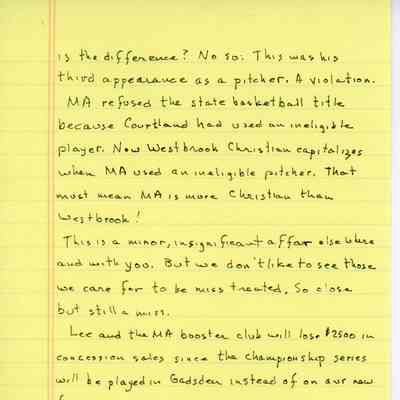 is the difference? No so: This was his
third appearance as a pitcher. A violation.
MA refused the state basketball title
because Courtland had used an ineligible
player. Now Westbrook Christian capitalizes
when MA used an ineligible pitcher. That
must mean MA is more Christian than
Westbrook!
This is a minor, insignificant affar elsewhere
and with you. But we don't like to see those
we care for to be miss treated. So close
but still a miss.
Lee and the MA booster club will lose $2500 in
concession sales since the championship series
will be played in Gadsden instead of on our new